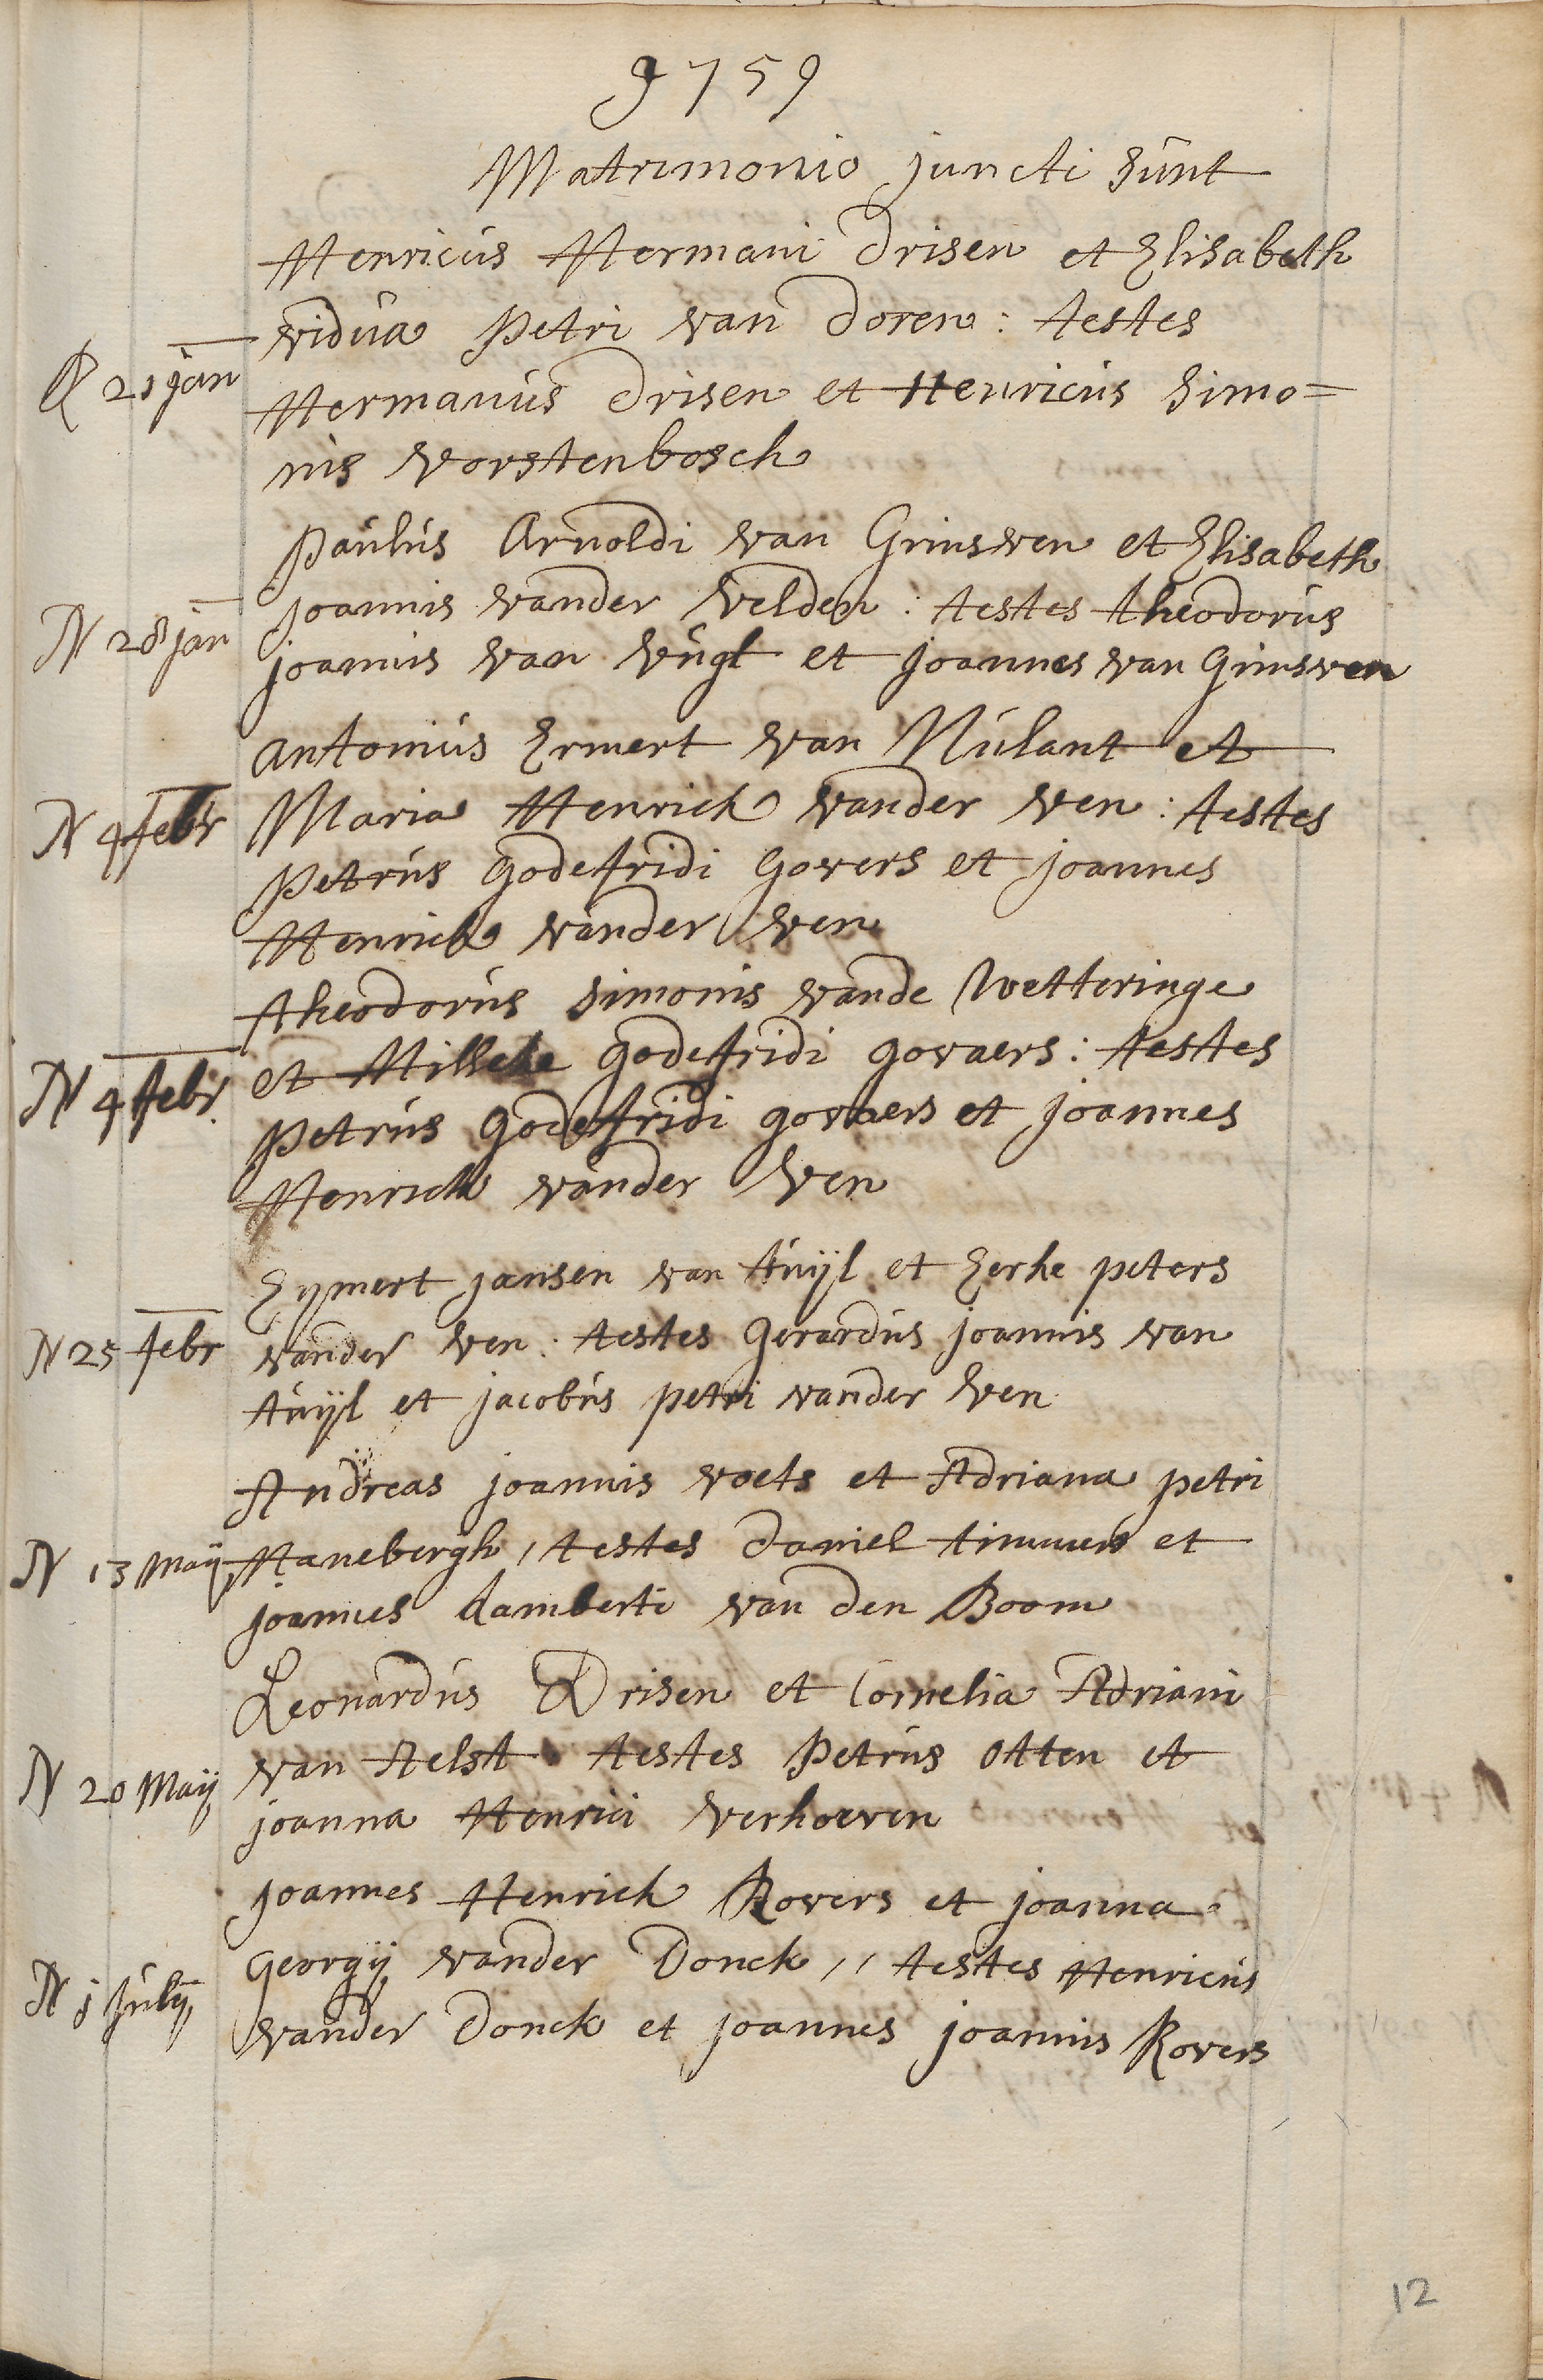 1759
Matrimonio juncti sunt
Henricus Hermani Drisen et Elisabeth
vidua Petri van Doren: testes
R 21 jan
Hermanus Drisen et Henricus Simo=
nis Vorstenbosch
Paulus Arnoldi van Grinsven et Elisabeth
N 28 jan
joannis vander Velden: testes theodorus
joannis van Vugt et joannes van Grinsven
antonius Ermert van Nulant et
N 4 febr
Maria Henrick vander ven: testes
Petrus Godefridi Govers et joannes
Henrick vander ven
theodorus Simonis vande Wetteringe
N 4 febr.
et Milleke godefridi govaers: testes
Petrus Godefridi govaers et joannes
Henrick vander Ven
Eymert jansen van tuijl et Eerke peters
N 25 febr
vander ven: testes Gerardus joannis van
tuijl et jacobus petri vander Ven
Andreas joannis voets et Adriana petri
N 13 Maij
Hanebergh, testes Daniel timmers et
joannes Lamberti van den Boom
Leonardus Drisen et Cornelia Adriani
N 20 Maij
van Aelst testes Petrus Otten et
joanna Henrici Verhoeven
joannes Henrick Rovers et joanna
N 1 Julij
Georgij vander Donck,, testes Henricus
vander Donck et joannes joannis Rovers
12